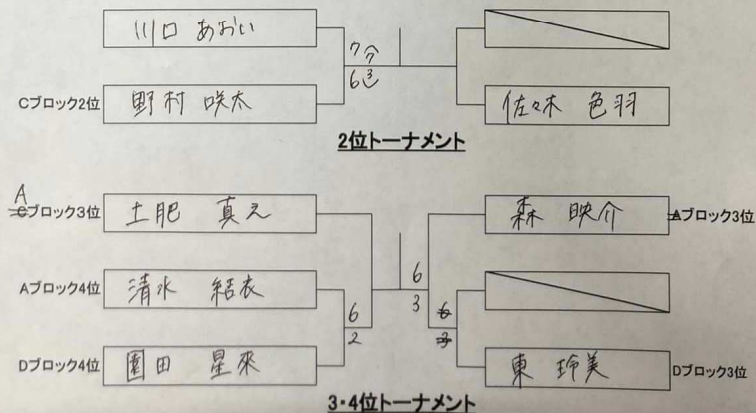 川口 あおい
7
6
Cブロック2位 野村 咲太
佐々木 色羽
2位トーナメント
A
Cブロック3位 土肥 真之
森 映介 Aブロック3位
Aブロック4位 清水 結衣
6
3
6
2
6
3
Dブロック4位 園田 星來
東 玲美 Dブロック3位
3・4位トーナメント